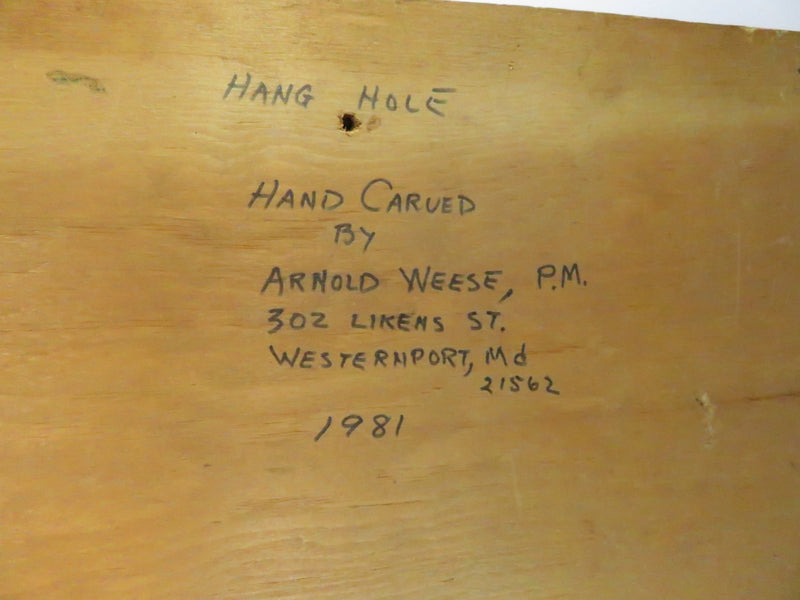 HANG HOLE
HAND CARVED
BY
ARNOLD WEESE, P.M.
302 LIKENS ST.
WESTERNPORT, Md
21562
1981